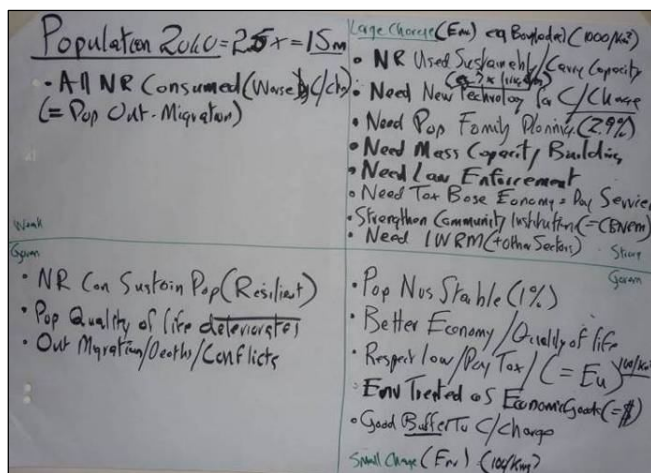 Population 2040 = 2.5 x = 15m
• All NR Consumed (Worse by C/ch)
(= Pop Out-Migration)
Weak
Large Change (Env) eg Bangladesh (1000/Km²)
• NR Used Sustainably/Carry Capacity
• Need New Technology for C/Change
• Need Pop Family Planning (2.9%)
• Need Mass Capacity Building
• Need Law Enforcement
• Need Tax Base Economy = Pay Services
• Strengthen Community Institutions (= CBNRM)
• Need IWRM (+ other Sectors)
Strong
Govern
• NR Can Sustain Pop (Resilient)
• Pop Quality of life deteriorates
• Out Migration/Deaths/Conflicts
Govern
• Pop Nos Stable (1%)
• Better Economy/Quality of life
• Respect Law/Pay Tax/(= Eu) 100/Km²
• Env Treated as Economic Goods (= $)
• Good Buffer To C/Change
Small Change (Env) (100/Km²)